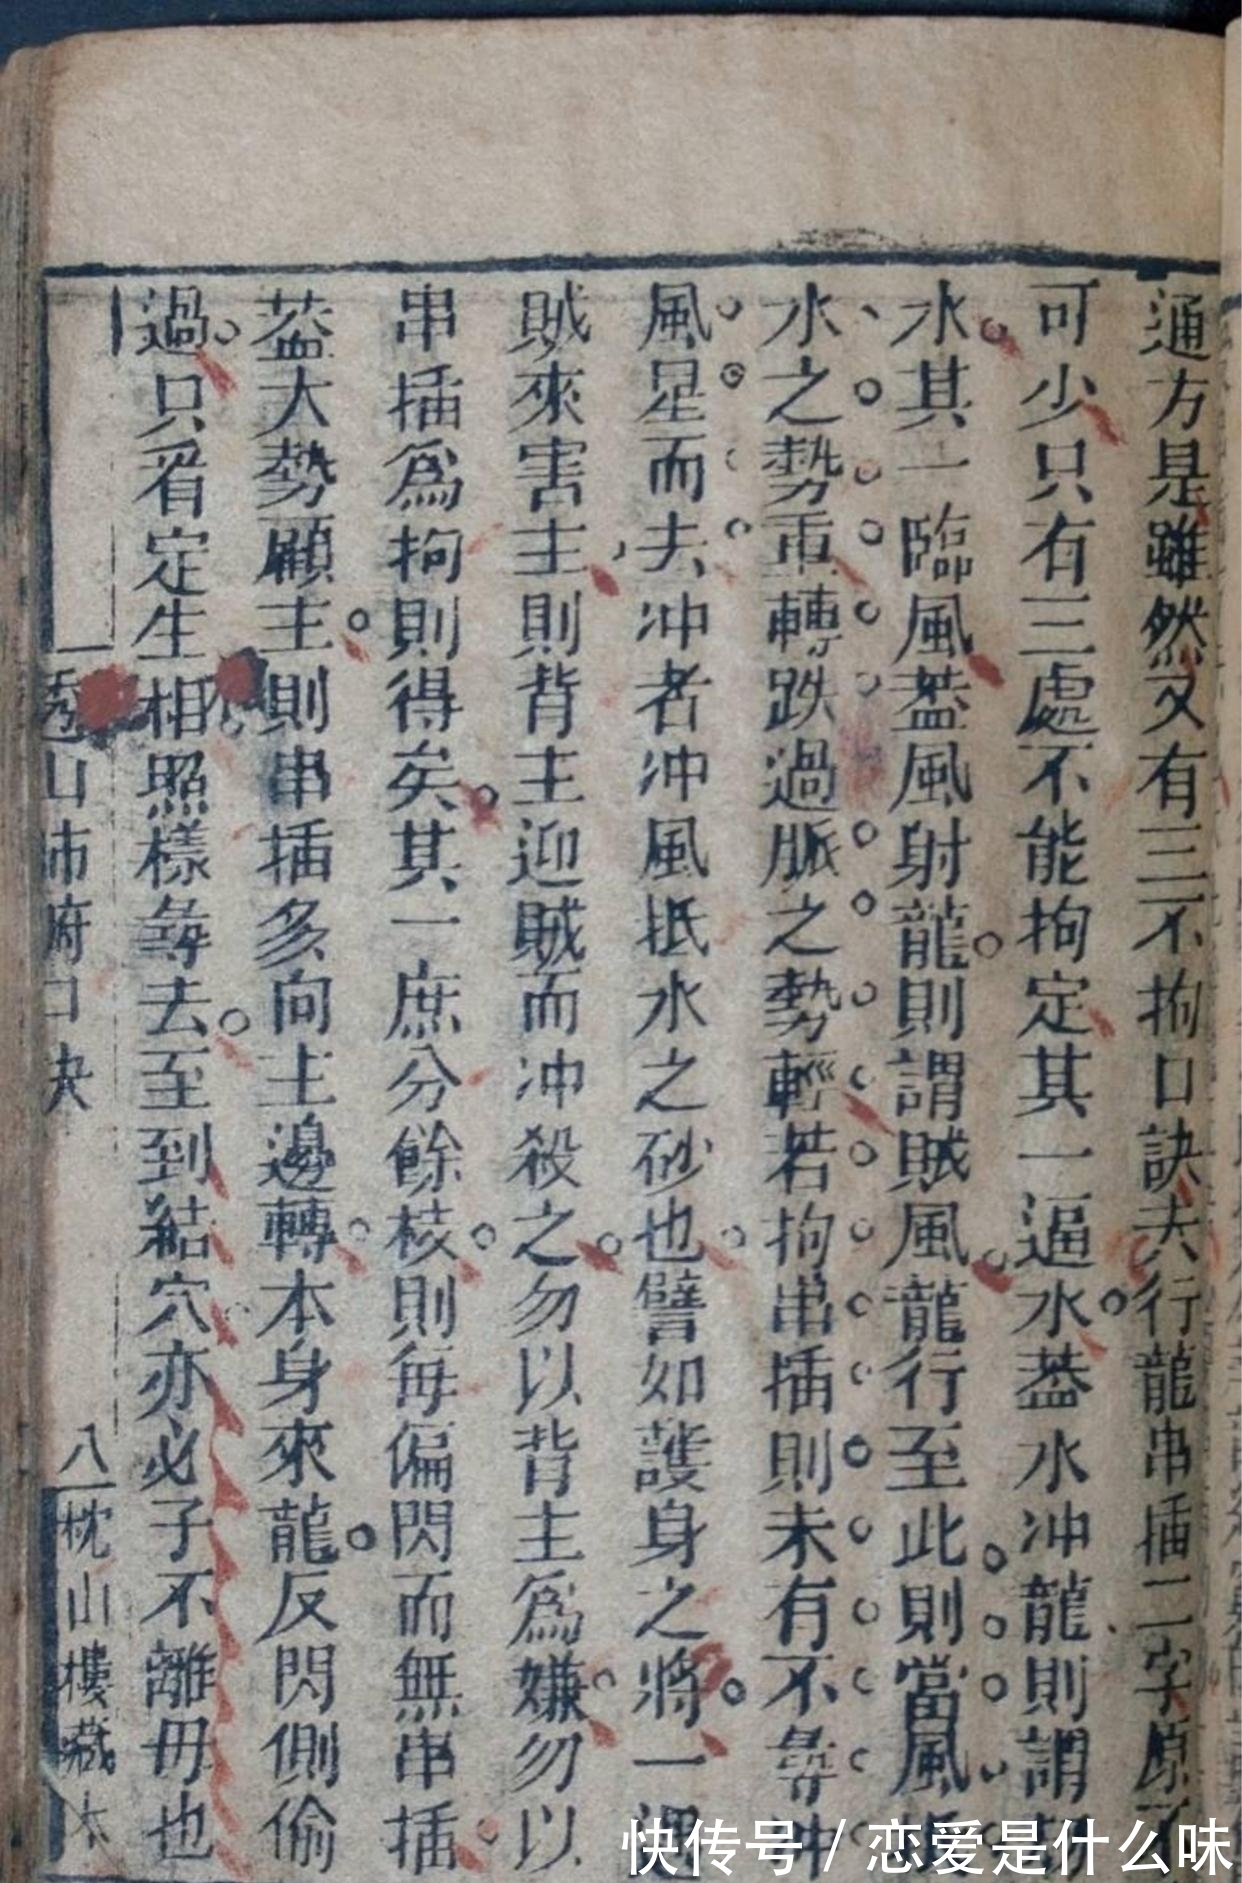 通方是雖然又有三不拘口訣夫行龍串插二字原不
可少只有三處不能拘定其一逼水葢水冲龍則謂
水其一臨風葢風射龍則謂賊風龍行至此則當風
水之勢重轉跌過脈之勢輕若拘串插則未有不尋冲
風星而去冲者冲風抵水之砂也譬如護身之將一遇
賊來害主則背主迎賊而冲殺之勿以背主爲嫌勿以
串插爲拘則得矣其一庶分餘枝則每偏閃而無串插
葢大勢顧主則串插多向主邊轉本身來龍反閃側偷
過只看定生相照樣尋去至到結穴亦必子不離毋也
透山肺腑口訣
八
枕山樓藏本
快传号/恋爱是什么味